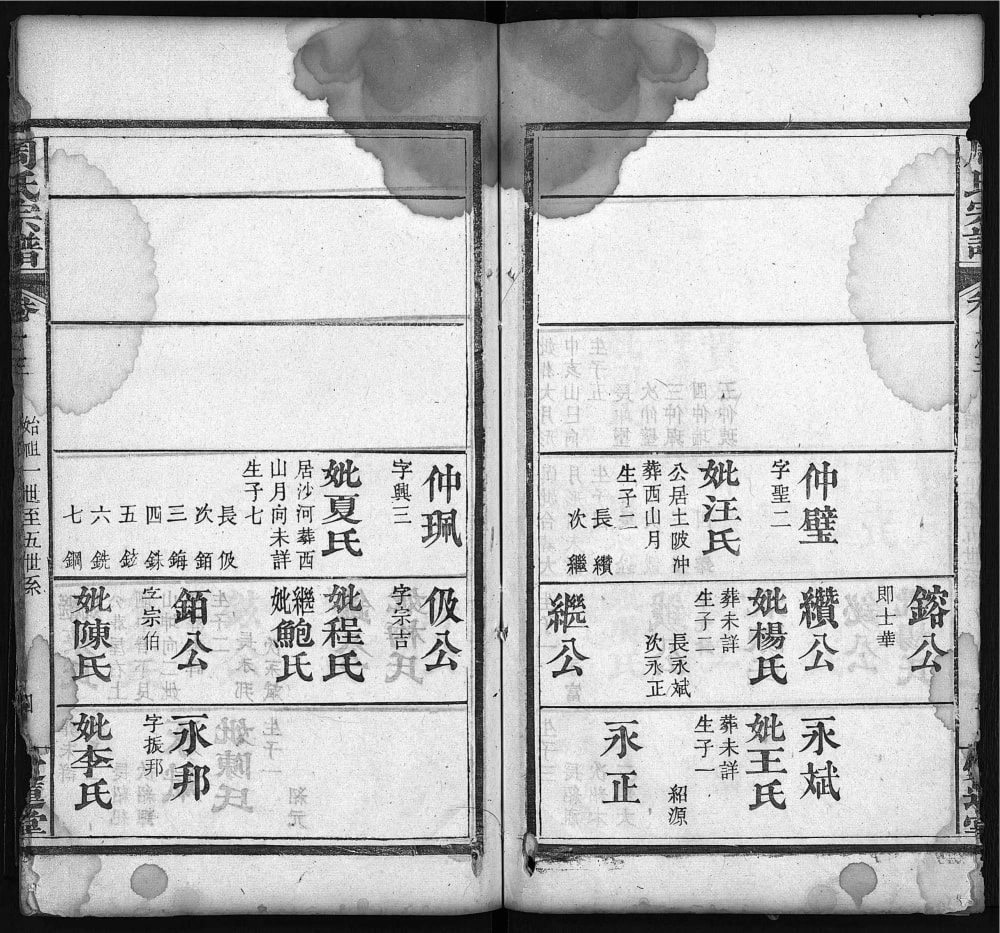 仲璧
字聖二
妣汪氏
公居土陂冲
葬西山月
生子二
長 纘
次 繼
鎔公
即士華
纘公
妣楊氏
葬未詳
生子二
長永斌
次永正
繼公
永斌
妣王氏
葬未詳
生子一
紹源
永正
仲珮
字興三
妣夏氏
居沙河葬西
山月向未詳
生子七
長 伋
次 鉑
三 鋂
四 銖
五 鈘
六 銑
七 鋼
伋公
字宗吉
妣程氏
繼妣鮑氏
鉑公
字宗伯
妣陳氏
永邦
字振邦
妣李氏
周氏宗譜
始祖一世至五世系